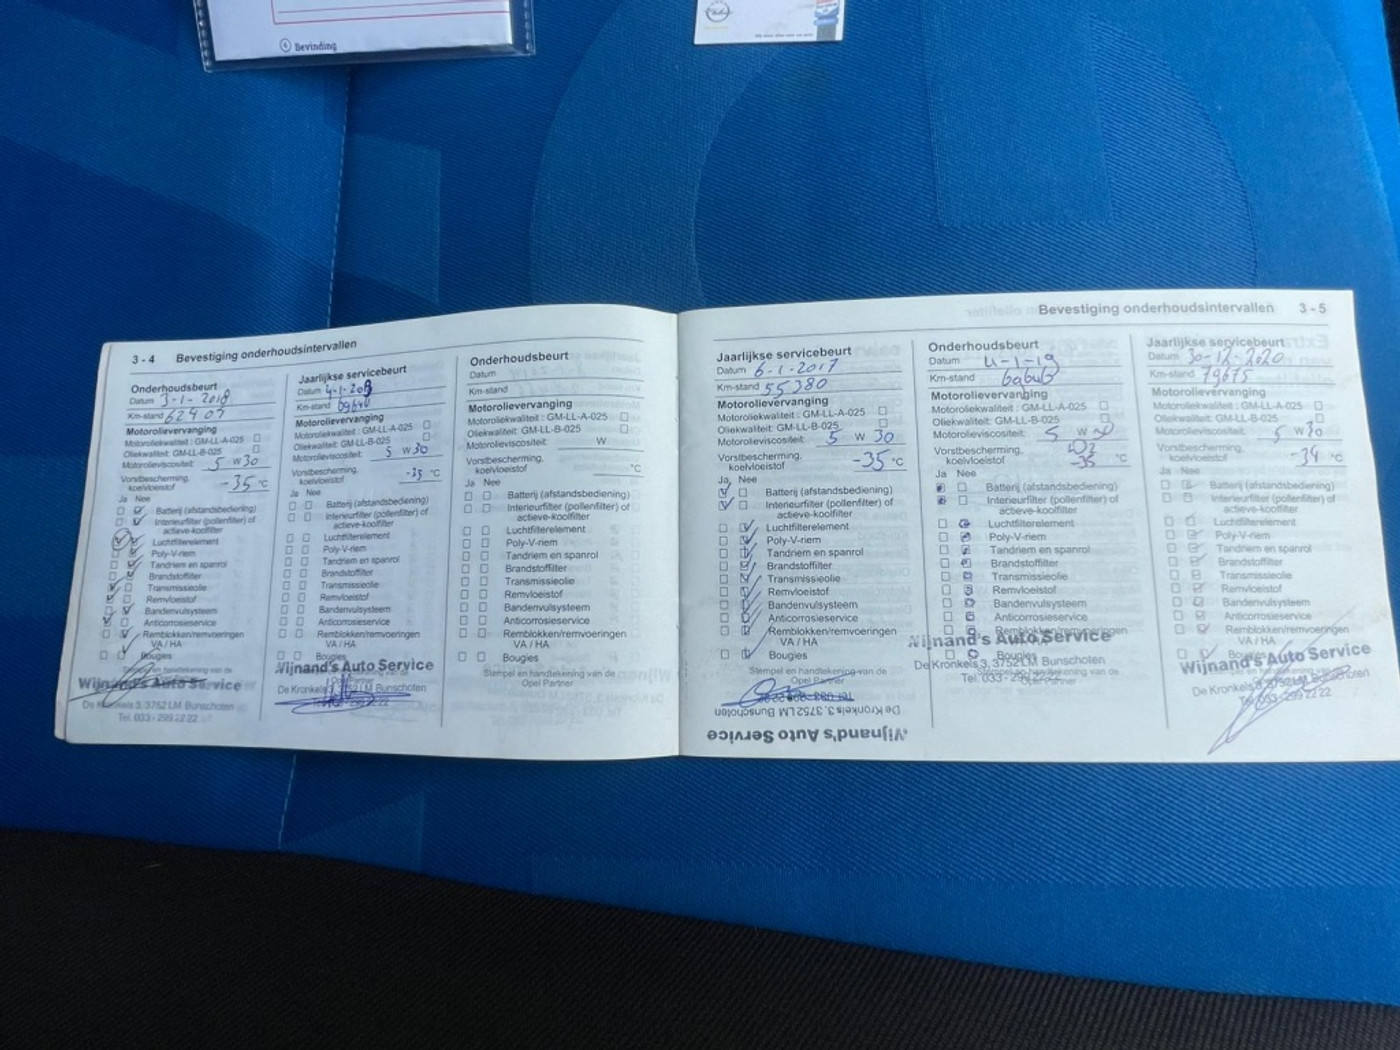 Bevinding
3 - 4 Bevestiging onderhoudsintervallen
Onderhoudsbeurt
Datum 3-1-2018
Km-stand 62407
Motorolievervanging
Motoroliekwaliteit : GM-LL-A-025
Oliekwaliteit: GM-LL-B-025
Motorolieviscositeit: 5 W 30
Vorstbescherming,
koelvloeistof -35 °C
Ja Nee
Batterij (afstandsbediening)
Interieurfilter (pollenfilter) of
actieve-koolfilter
Luchtfilterelement
Poly-V-riem
Tandriem en spanrol
Brandstoffilter
Transmissieolie
Remvloeistof
Bandenvulsysteem
Anticorrosieservice
Remblokken/remvoeringen
VA / HA
Bougies
Wijnand's Auto Service
De Kronkels 3, 3752 LM Bunschoten
Tel. 033 - 299 22 22
Jaarlijkse servicebeurt
Datum
Km-stand
Motorolievervanging
Motoroliekwaliteit : GM-LL-A-025
Oliekwaliteit: GM-LL-B-025
Motorolieviscositeit: 5 W 30
Vorstbescherming,
koelvloeistof °C
Ja Nee
Batterij (afstandsbediening)
Interieurfilter (pollenfilter) of
actieve-koolfilter
Luchtfilterelement
Poly-V-riem
Tandriem en spanrol
Brandstoffilter
Transmissieolie
Remvloeistof
Bandenvulsysteem
Anticorrosieservice
Remblokken/remvoeringen
VA / HA
Bougies
Wijnand's Auto Service
De Kronkels 3, 3752 LM Bunschoten
Onderhoudsbeurt
Datum
Km-stand
Motorolievervanging
Motoroliekwaliteit : GM-LL-A-025
Oliekwaliteit: GM-LL-B-025
Motorolieviscositeit: W
Vorstbescherming,
koelvloeistof °C
Ja Nee
Batterij (afstandsbediening)
Interieurfilter (pollenfilter) of
actieve-koolfilter
Luchtfilterelement
Poly-V-riem
Tandriem en spanrol
Brandstoffilter
Transmissieolie
Remvloeistof
Bandenvulsysteem
Anticorrosieservice
Remblokken/remvoeringen
VA / HA
Bougies
Stempel en handtekening van de
Opel Partner
Bevestiging onderhoudsintervallen 3 - 5
Jaarlijkse servicebeurt
Datum 6-1-2017
Km-stand 55380
Motorolievervanging
Motoroliekwaliteit : GM-LL-A-025
Oliekwaliteit: GM-LL-B-025
Motorolieviscositeit: 5 W 30
Vorstbescherming,
koelvloeistof -35 °C
Ja Nee
Batterij (afstandsbediening)
Interieurfilter (pollenfilter) of
actieve-koolfilter
Luchtfilterelement
Poly-V-riem
Tandriem en spanrol
Brandstoffilter
Transmissieolie
Remvloeistof
Bandenvulsysteem
Anticorrosieservice
Remblokken/remvoeringen
VA / HA
Bougies
Stempel en handtekening van de
Opel Partner
De Kronkels 3, 3752 LM Bunschoten
Wijnand's Auto Service
Onderhoudsbeurt
Datum 4-1-19
Km-stand
Motorolievervanging
Motoroliekwaliteit : GM-LL-A-025
Oliekwaliteit: GM-LL-B-025
Motorolieviscositeit: 5 W
Vorstbescherming,
koelvloeistof -35 °C
Ja Nee
Batterij (afstandsbediening)
Interieurfilter (pollenfilter) of
actieve-koolfilter
Luchtfilterelement
Poly-V-riem
Tandriem en spanrol
Brandstoffilter
Transmissieolie
Remvloeistof
Bandenvulsysteem
Anticorrosieservice
Remblokken/remvoeringen
Wijnand's Auto Service
VA / HA
Bougies
De Kronkels 3, 3752 LM Bunschoten
Tel. 033 - 299 22 22
Jaarlijkse servicebeurt
Datum 30-12-2020
Km-stand 79675
Motorolievervanging
Motoroliekwaliteit : GM-LL-A-025
Oliekwaliteit: GM-LL-B-025
Motorolieviscositeit: 5 W 30
Vorstbescherming,
koelvloeistof -34 °C
Ja Nee
Batterij (afstandsbediening)
Interieurfilter (pollenfilter) of
actieve-koolfilter
Luchtfilterelement
Poly-V-riem
Tandriem en spanrol
Brandstoffilter
Transmissieolie
Remvloeistof
Bandenvulsysteem
Anticorrosieservice
Remblokken/remvoeringen
VA / HA
Bougies
Wijnand's Auto Service
De Kronkels 3, 3752 LM Bunschoten